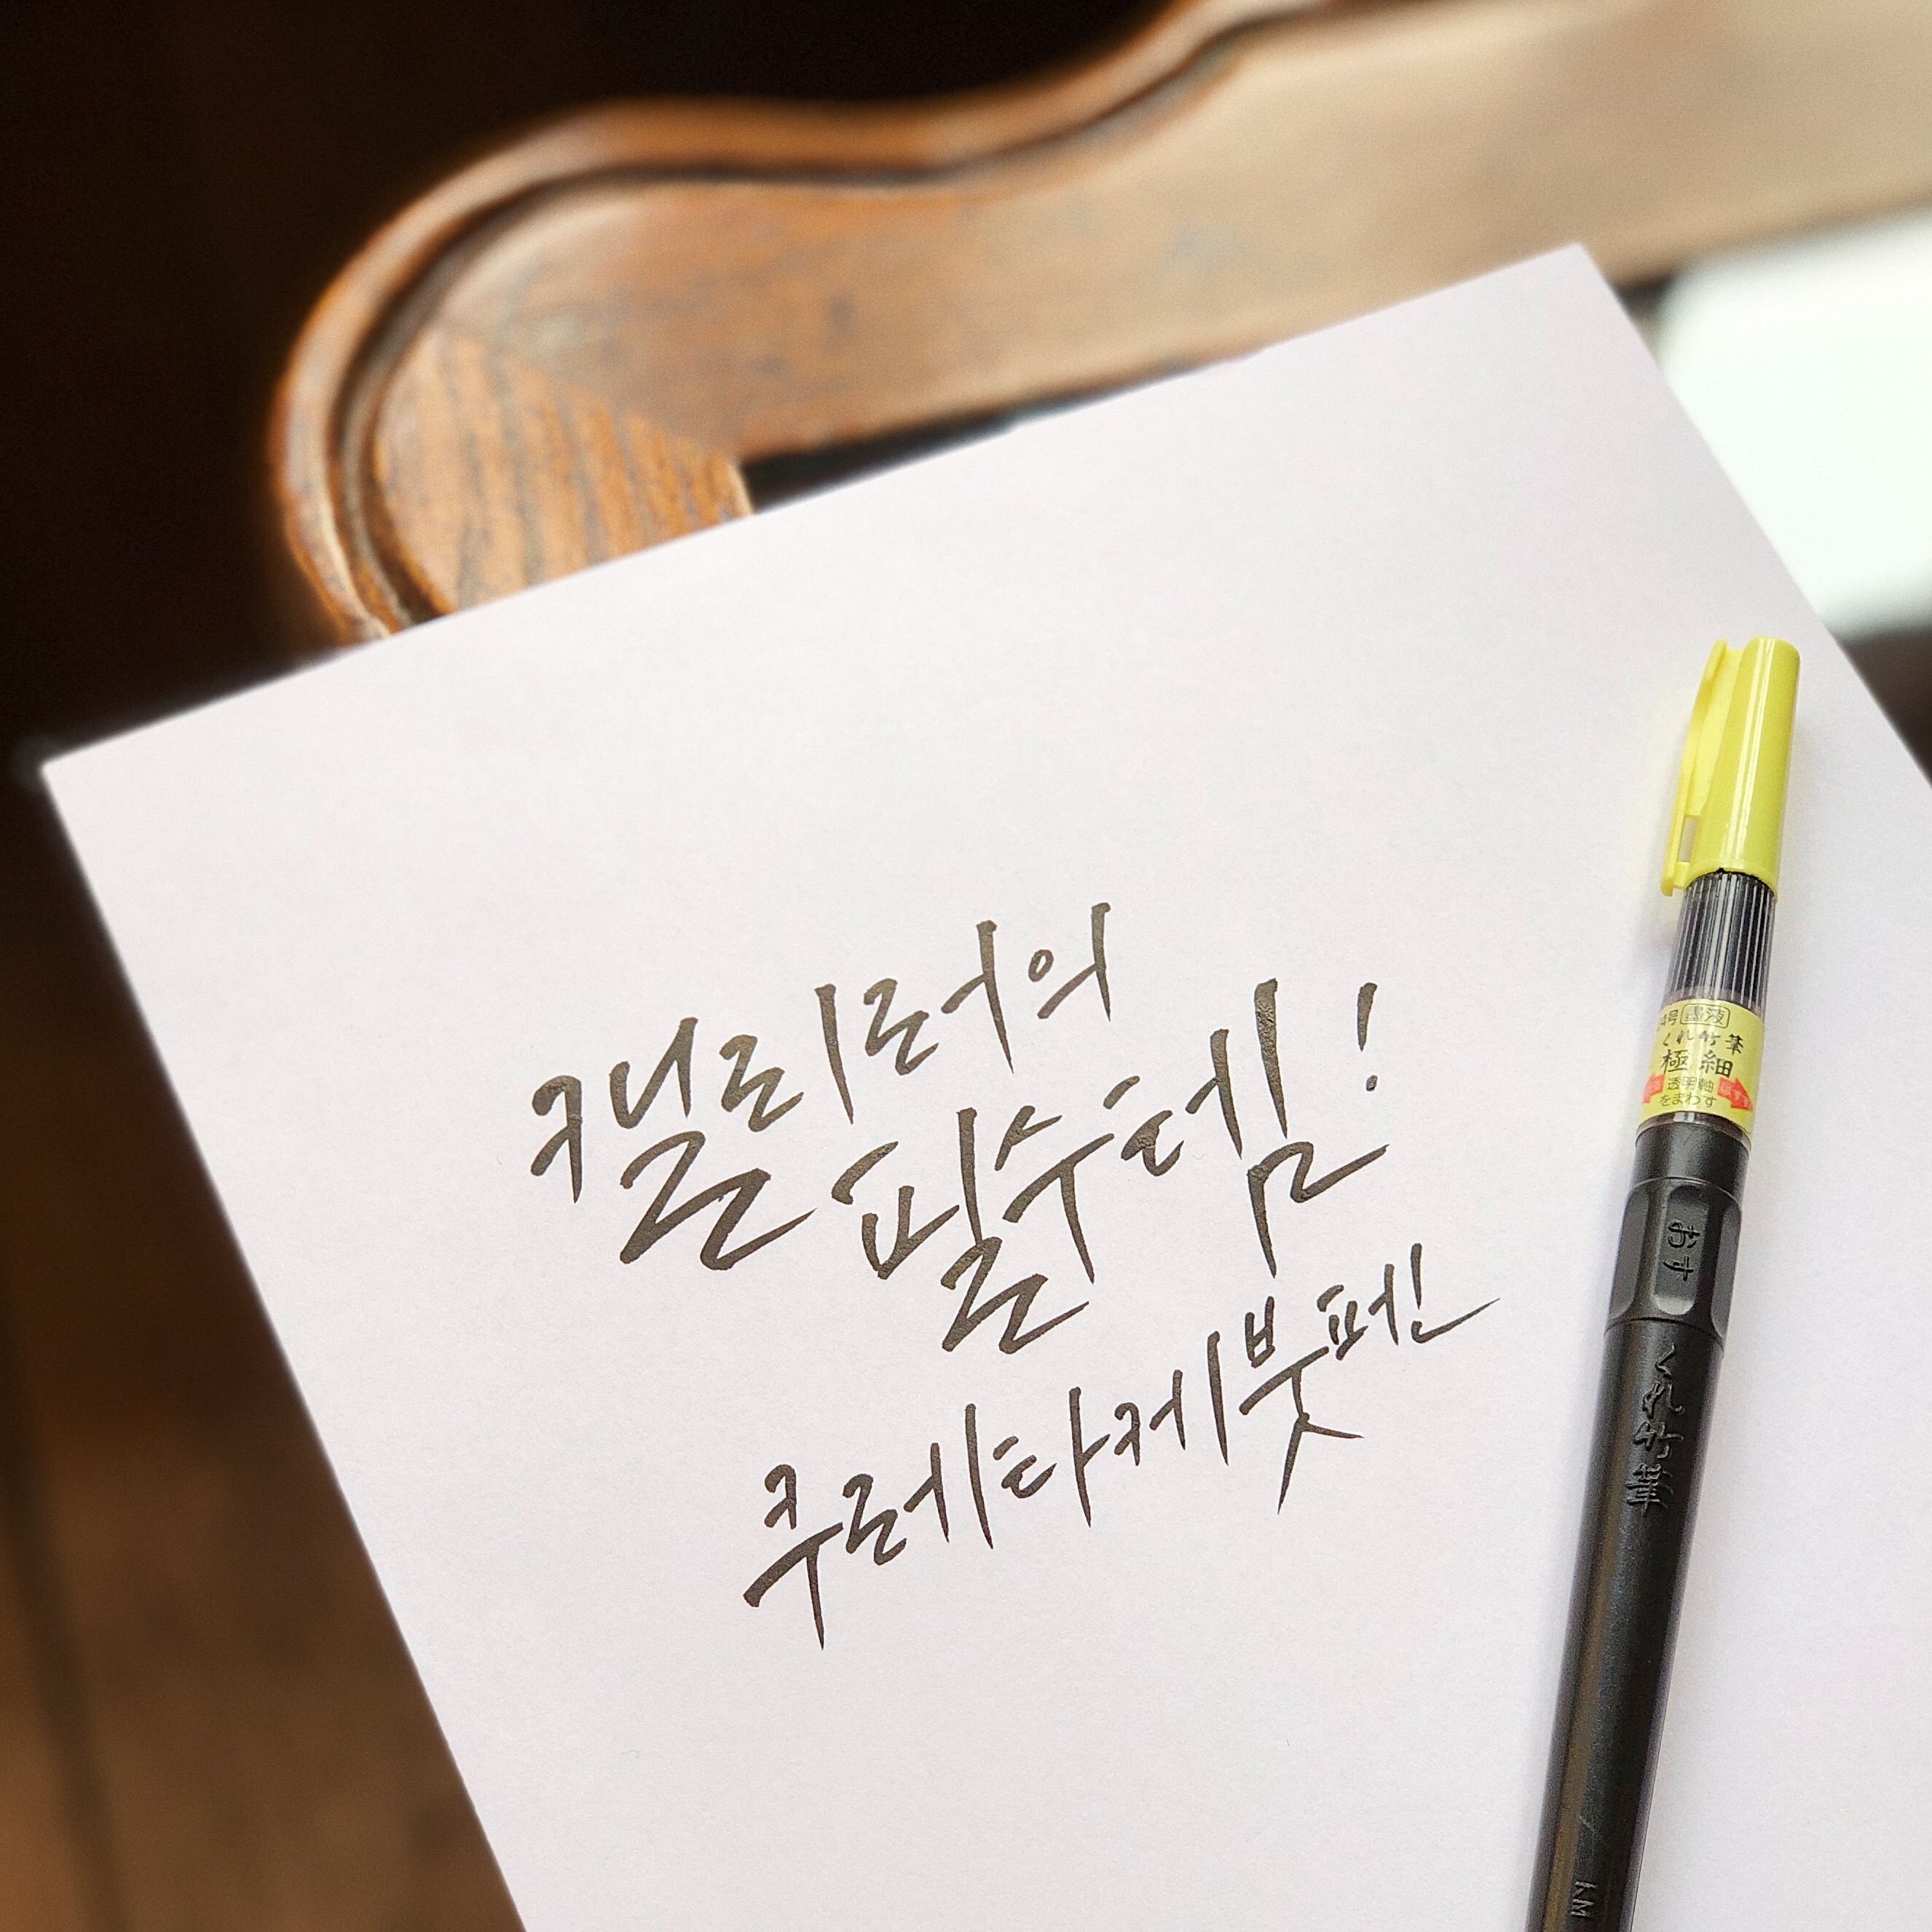 캘리러의
필수템!
쿠레타케붓펜
24号 墨液
くれ竹筆
極細
透明軸
をまわす
おす
くれ竹筆
KM